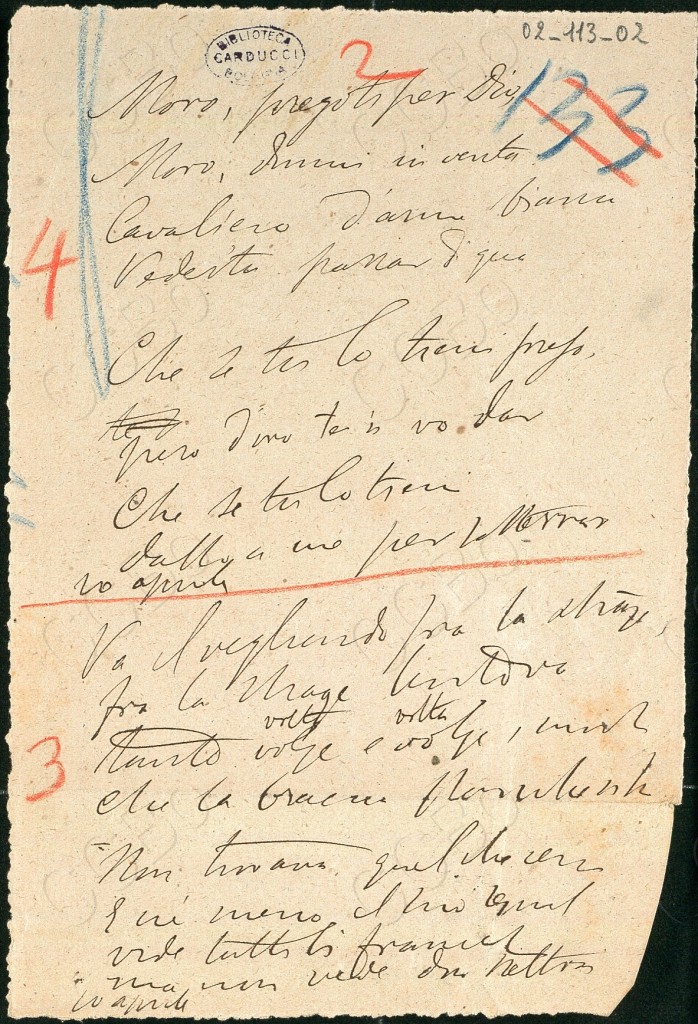 02-113-02
BIBLIOTECA
CARDUCCI
BOLOGNA
2
133
Moro, pregoti per Dio
Moro, dimmi in verità
Cavaliero d'arme bianca
Vedestu passar di qua
4
Che se tu lo tieni preso,
peso d'oro te ne vo dar
Che se tu lo tieni
dallo a me per sotterrar
20 aprile
Va il vegliardo fra la strage,
fra la strage
volta volta
tanto volge e volge,
che la braccia
3
Non trovava quel che cerca
E nè meno il suo
vede tutti li francesi
ma non vede don Beltran
20 aprile